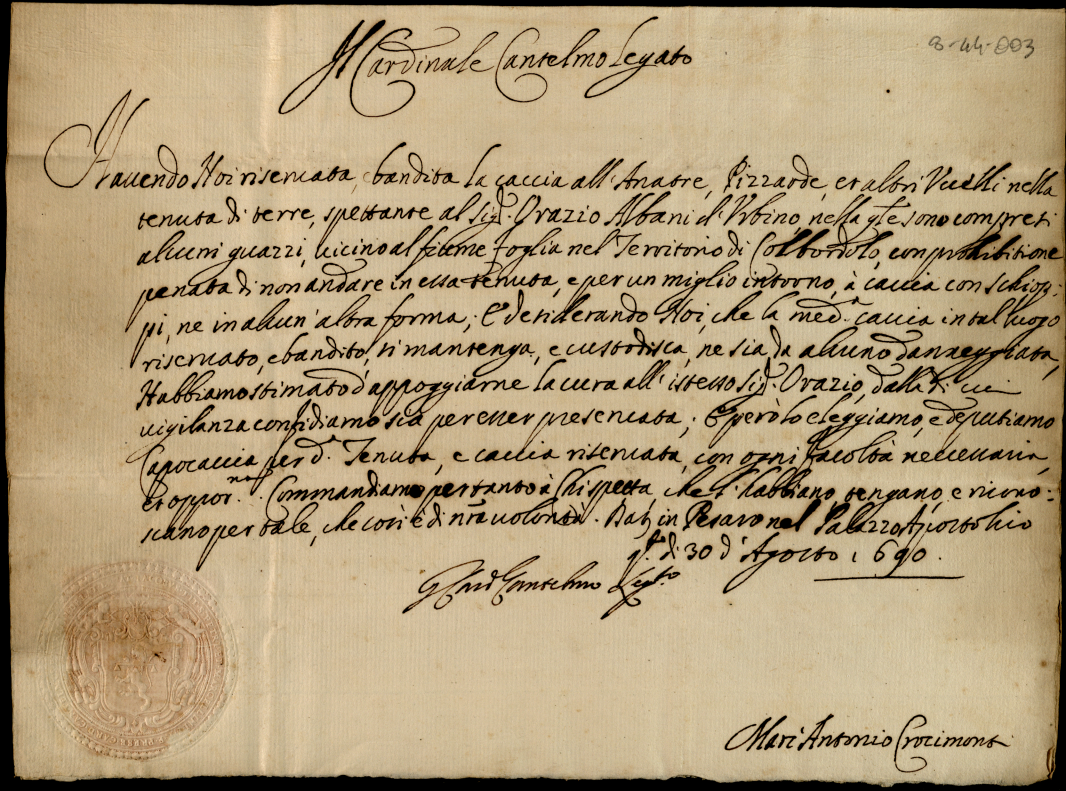 8-44-003
Il Cardinale Cantelmo Legato
Havendo Noi riservata, e bandita la caccia all'Anatre, Pizzarde, et altri Vcelli nella
tenuta di terre, spettante al Sig.r Orazio Albani d'Vrbino, nella q.le sono compresi
alcuni guazzi, vicino al fiume Foglia nel Territorio di Colbordolo, con prohibitione
penata di non andare in essa tenuta, e per un miglio intorno, à caccia con schiop-
pi, ne in alcun'altra forma; E desiderando Noi, che la med.a caccia in tal luogo
riservato, e bandito, si mantenga, e custodisca, ne sia da alcuno danneggiata,
Habbiamo stimato d'appoggiarne la cura all'istesso Sig.r Orazio, dalla di cui
vigilanza confidiamo sia per esser preservata; E però lo eleggiamo, e deputiamo
Capocaccia per d.a Tenuta, e caccia riservata, con ogni facoltà necessaria,
et oppor.na. Commandiamo pertanto à chi spetta, che l'habbiano, tengano, e ricono-
scano per tale, che così è di n̄ra volontà. Dat. in Pesaro nel Palazzo Apostolico
q.to dì 30 d'Agosto 1690.
G Card Cantelmo Leg.to
Marc'Antonio Crocimont